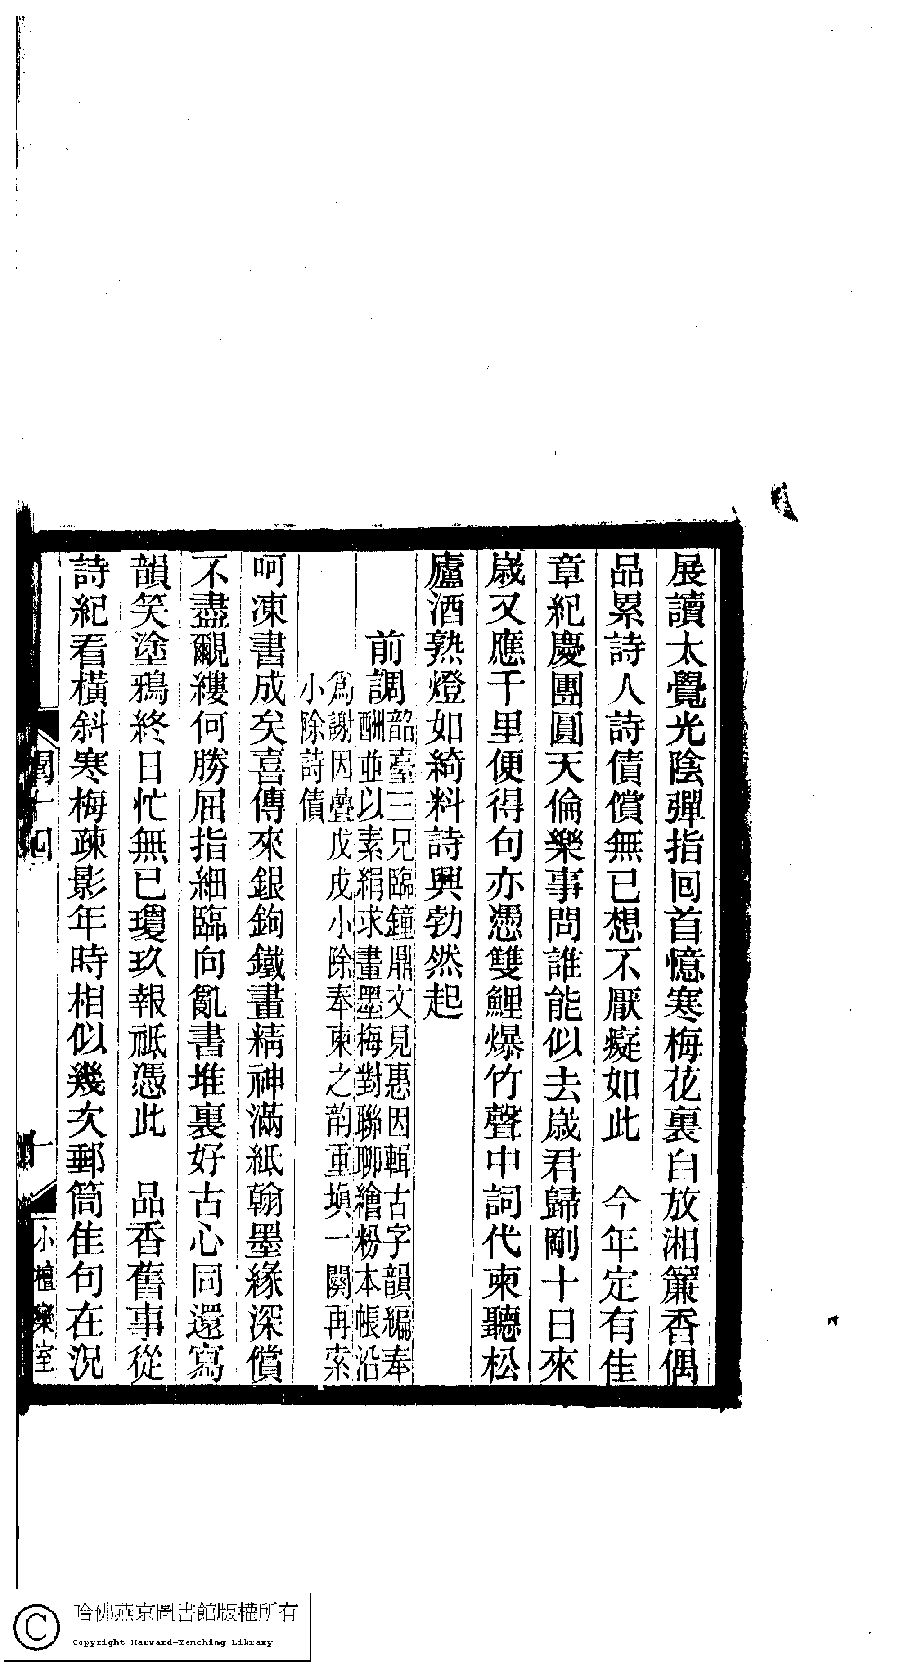 展讀太覺光陰彈指回首憶寒梅花裏自放湘簾香偶
品累詩人詩債償無已想不厭癡如此　今年定有佳
章紀慶團圓天倫樂事問誰能似去歲君歸剛十日來
歲又應千里便得句亦憑雙鯉爆竹聲中詞代柬聽松
廬酒熟燈如綺料詩興勃然起
前調
韶臺三兄臨鐘鼎文見惠因輯古字韻編奉
酬並以素絹求畫墨梅對聯聊繪粉本帳沿
爲謝因疊戊戌小除奉柬之韵重填一闋再索
小除詩債
呵凍書成矣喜傳來銀鉤鐵畫精神滿紙翰墨緣深償
不盡覼縷何勝屈指細臨向亂書堆裏好古心同還寫
韻笑塗鴉終日忙無已瓊玖報祗憑此　品香舊事從
詩紀看橫斜寒梅疎影年時相似幾次郵筒佳句在況
閨十四
十
小檀欒室
哈佛燕京圖書館版權所有
Copyright Harvard-Yenching Library